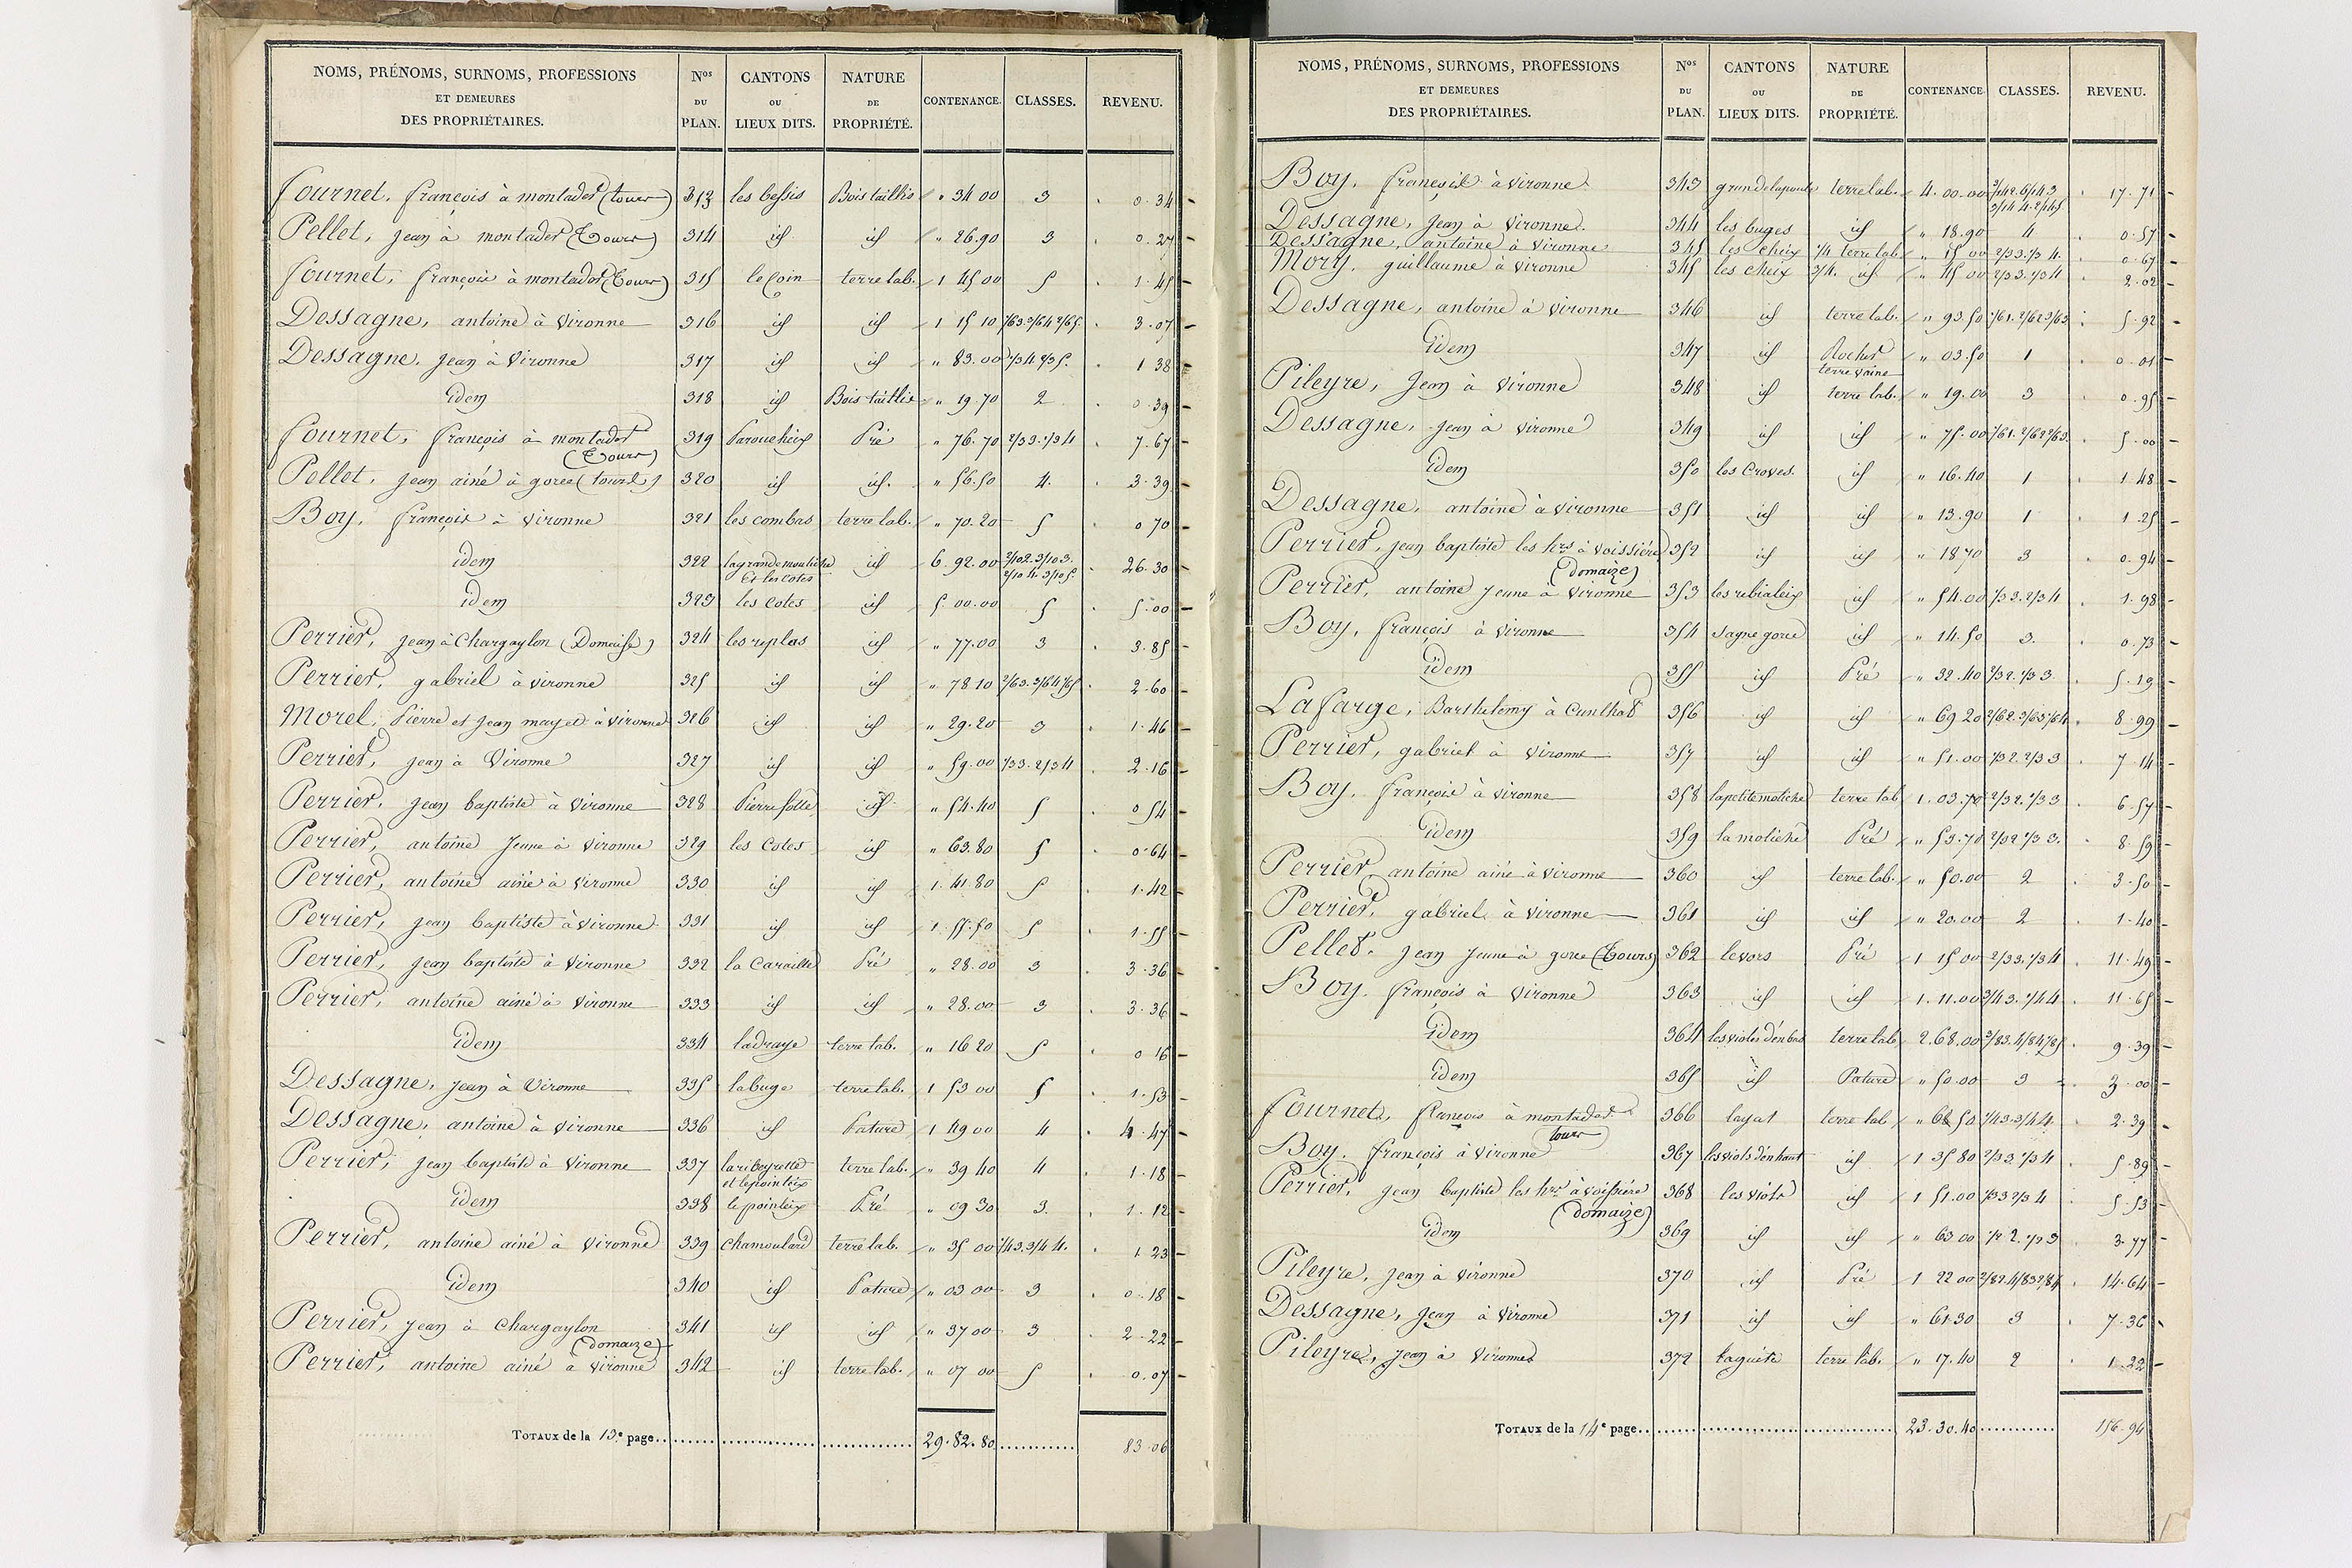 NOMS, PRÉNOMS, SURNOMS, PROFESSIONS ET DEMEURES DES PROPRIÉTAIRES. Nos DU PLAN. CANTONS OU LIEUX DITS. NATURE DE PROPRIÉTÉ. CONTENANCE. CLASSES. REVENU.
fournet, françois à montader (tours) 313 les bessis Bois taillis " 34 00 3 0.34
Pellet, jean à montader (Tours) 314 id id " 26.90 3 0.27
fournet, françois à montader (Tours) 315 le coin terre lab. 1 45 00 5 1.45
Dessagne, antoine à Vironne 316 id id 1 15 10 1/63.3/64 2/65. 3.07
Dessagne, jean à Vironne 317 id id " 83.00 1/34 2/35. 1 38
idem 318 id Bois taillis " 19.70 2 0.39
fournet, françois à montader (Tours) 319 Pré " 76.70 2/33.1/34 7.67
Pellet, jean ainé à goree (tours) 320 id id. " 56.50 4. 3.39
Boy, françois à Vironne 321 les combas terre lab. " 70.20 5 0 70
idem 322 la grande mouliche Et les cotes id 6.92.00 2/102.3/103. 2/104.3/105. 26.30
idem 323 les cotes id 5.00.00 5 5.00
Perrier, jean à Chargaylon (Domaise) 324 les replas id " 77.00 3 3.85
Perrier, gabriel à Vironne 325 id id " 78 10 2/63.3/64 1/65 2.60
Morel, Pierre et jean mayet à Vironne 326 id id " 29.20 3 1.46
Perrier, jean à Vironne 327 id id " 59.00 1/33.2/34 2.16
Perrier, jean baptiste à Vironne 328 Pierre folle id " 54.40 5 0 54
Perrier, antoine jeune à Vironne 329 les cotes id " 63.80 5 0.64
Perrier, antoine ainé à Vironne 330 id id 1.41.80 5 1.42
Perrier, jean baptiste à Vironne 331 id id 1.55.50 5 1.55
Perrier, jean baptiste à Vironne 332 la Caraille Pré " 28.00 3 3.36
Perrier, antoine ainé à Vironne 333 id id " 28.00 3 3.36
idem 334 ladraye terre lab. " 16 20 5 0 16
Dessagne, jean à Vironne 335 labuge terre lab. 1 53 00 5 1.53
Dessagne, antoine à Vironne 336 id Pature 1 49 00 4 4.47
Perrier, jean baptiste à Vironne 337 la ribeyrette et le pointeix terre lab. " 39 40 4 1.18
idem 338 le pointeix Pré " 09 30 3. 1.12
Perrier, antoine ainé à Vironne 339 chamoulard terre lab. " 35 00 1/43.3/44. 1 23
idem 340 id Pature " 03 00 3 0.18
Perrier, jean à Chargaylon (Domaize) 341 id id " 37 00 3 2.22
Perrier, antoine ainé à Vironne 342 id terre lab. " 07 00 5 0.07
TOTAUX de la 13e page 29.82.80 83.06
NOMS, PRÉNOMS, SURNOMS, PROFESSIONS ET DEMEURES DES PROPRIÉTAIRES. Nos DU PLAN. CANTONS OU LIEUX DITS. NATURE DE PROPRIÉTÉ. CONTENANCE. CLASSES. REVENU.
Boy, françois à Vironne 343 terre lab. 4.00.00 3/142.6/143 3/144.2/145 17.71
Dessagne, jean à Vironne 344 les buges id " 18.90 4 0.57
Dessagne, antoine à Vironne 345 les cheix 1/4 terre lab " 15 00 2/33.1/34. 0.67
Mory, guillaume à Vironne 345 les cheix 3/4. id " 45 00 2/33.1/34 2.02
Dessagne, antoine à Vironne 346 id terre lab. " 93.50 1/61.2/62 3/63 5.92
idem 347 id Rocher terre vaine " 03.50 1 0.01
Pileyre, Jean à Vironne 348 id terre lab. " 19.00 3 0.95
Dessagne, jean à Vironne 349 id id " 75.00 1/61.2/62 3/63 5.00
idem 350 les Croves. id " 16.40 1 1.48
Dessagne, antoine à Vironne 351 id id " 13.90 1 1.25
Perrier, jean baptiste les hrs à Voissière (Domaize) 352 id id " 18 70 3 0.94
Perrier, antoine jeune à Vironne 353 les ribialeix id " 54.00 1/33.2/34 1.98
Boy, françois à Vironne 354 sagne goree id " 14.50 3. 0.73
idem 355 id Pré " 32.40 2/32.1/33. 5.19
Lafarge, Barthelemy à Cunlhat 356 id id " 69 20 2/62.3/63 1/64 8.99
Perrier, gabriel à Vironne 357 id id " 51.00 1/32 2/33 7.14
Boy, françois à Vironne 358 la petite moliche terre lab 1.03.70 2/32.1/33 6.57
idem 359 la moliche Pré " 53.70 2/32 1/33. 8.59
Perrier, antoine ainé à Vironne 360 id terre lab. " 50.00 2 3.50
Perrier, gabriel à Vironne 361 id id " 20.00 2 1.40
Pellet, jean jeune à goree (Tours) 362 levors Pré 1 15 00 2/33.1/34 11.49
Boy, françois à Vironne 363 id id 1.11.00 3/43.1/44 11.65
idem 364 les viols d'en bas terre lab 2.68.00 3/83.4/84 1/85 9.39
idem 365 id Pature " 50.00 3 3.00
fournet, françois à montader (tours) 366 layat terre lab 1/43.3/44. 2.39
Boy, françois à Vironne 367 les viols d'en haut id 1 35 80 2/33.1/34 5.89
Perrier, jean baptiste les hrs à Voissière (Domaize) 368 les viols id 1 51.00 1/33 2/34 5.53
idem 369 id id " 63 00 1/2 2.1/2 3 3.77
Pileyre, jean à Vironne 370 id Pré 1 22 00 2/82.4/83 2/84 14.64
Dessagne, jean à Vironne 371 id id " 61.30 3 7.36
Pileyre, jean à Vironne 372 terre lab. " 17.40 2 1.22
TOTAUX de la 14e page 23.30.40 156.94